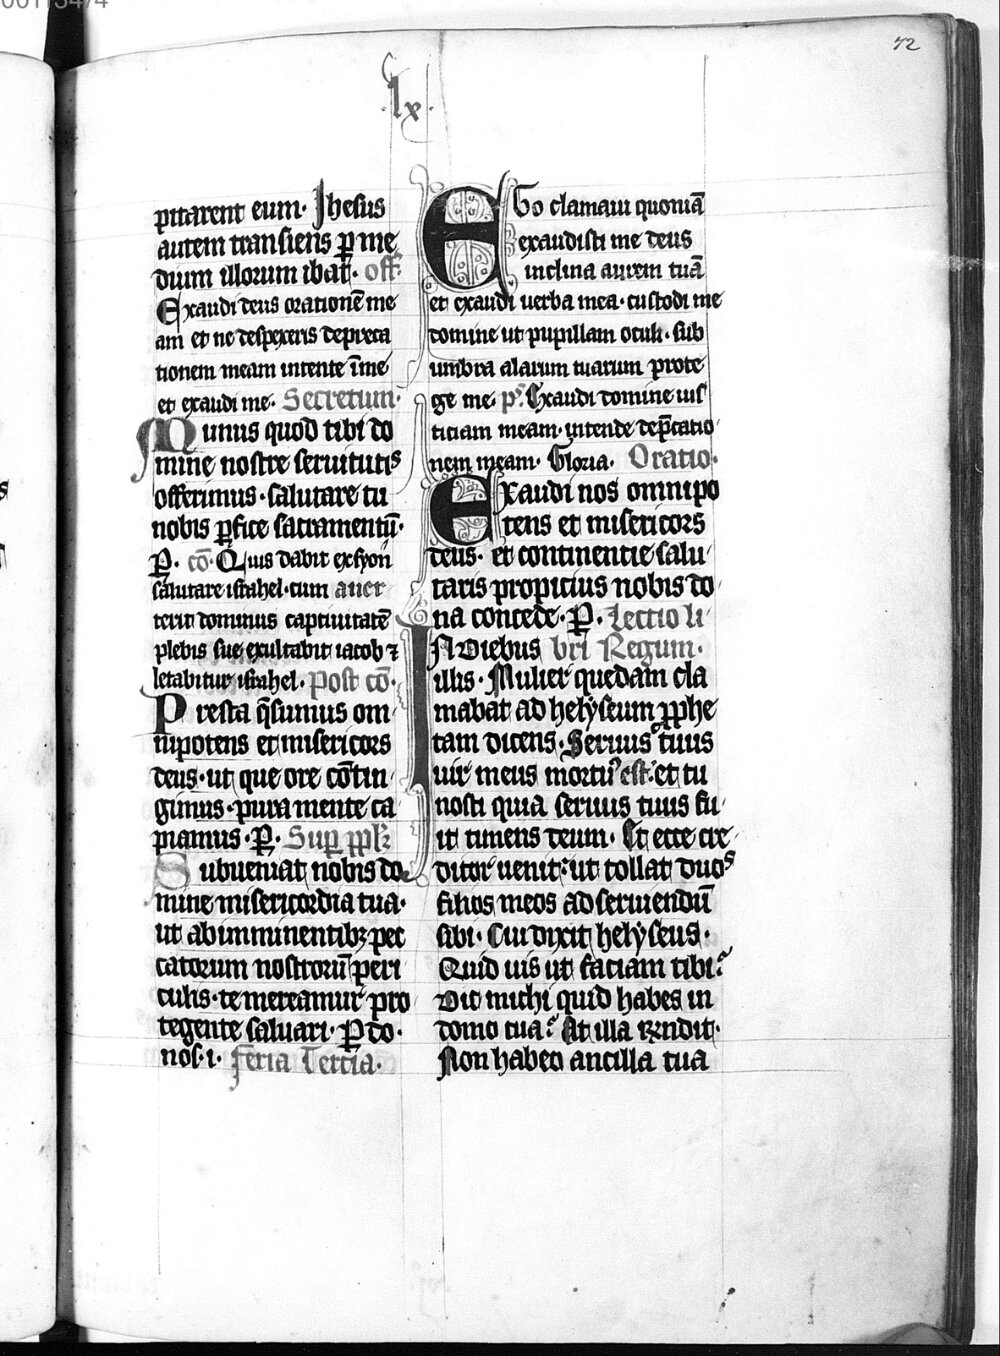 00113474
72
·lx·
pitarent eum· Jhesus
autem transiens ꝑ me
dium illorum ibat· off̄·
Exaudi deus orationē me
am et ne despexeris depreca
tionem meam intende ī me
et exaudi me· Secretum·
Munus quod tibi do
mine nostre seruitutis
offerimus· salutare tu
nobis ꝑfice sacramentū·
P̱· cō· Quis dabit ex syon
salutare israhel· cum auer
terit dominus captiuitatē
plebis sue exultabit iacob ⁊
letabitur israhel· Post cō·
Presta q̄sumus om
nipotens et misericors
deus· ut que ore cōtin
gimus· pura mente ca
piamus· P̱· Suꝑ pplꝫ
Subueniat nobis do
mine misericordia tua·
ut ab imminentibꝫ pec
catorum nostrorū peri
culis· te mereamur pro
tegente saluari· P̱ do·
nos· i· Feria Tercia·
EGo clamaui quoniā
exaudisti me deus
inclina aurem tuā
et exaudi uerba mea· custodi me
domine ut pupillam oculi· sub
umbra alarum tuarum prote
ge me· pˢ· Exaudi domine ius
ticiam meam· intende dep̄catio
nem meam· Gloria· Oratio·
Exaudi nos omnipo
tens et misericors
deus· et continentie salu
taris propicius nobis do
na concede· P̱· Lectio li
IN Diebus bri Regum·
illis· Mulier quedam cla
mabat ad helyseum ꝓphe
tam dicens· Seruus tuus
uir meus mortuꝰ est· et tu
nosti quia seruus tuus fu
it timens deum· Et ecce cre
ditor uenit· ut tollat duos
filios meos ad seruiendū
sibi· Cui dixit helyseus·
Quid uis ut faciam tibi?
Dic michi quid habes in
domo tua? At illa rn̄dit·
Non habeo ancilla tua